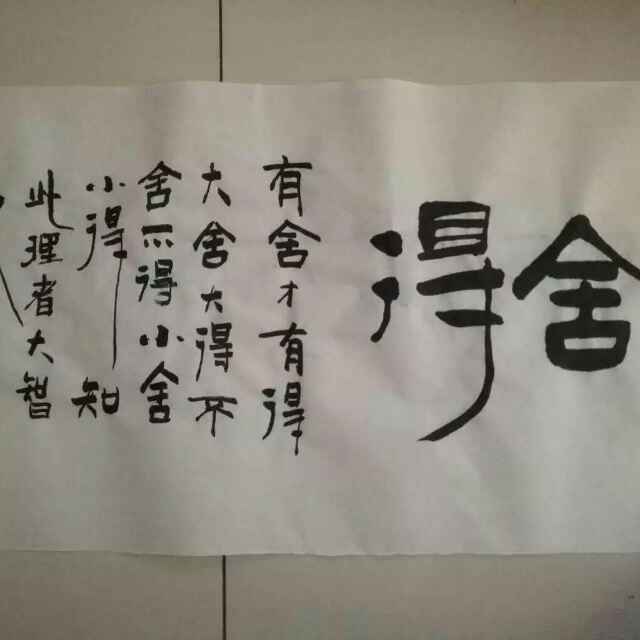 舍得
有舍才有得
大舍大得不
舍不得小舍
小得知
此理者大智